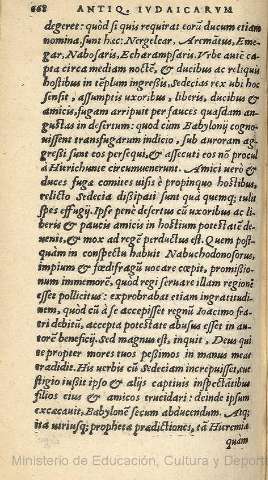 668 ANTIQ. IVDAICARVM
degeret: quòd si quis requirat eorũ ducum etiam
nomina, sunt hæc: Nergelear, Aremãtus, Eme-
gar, Nabosaris, Echarampsaris. Vrbe autẽ ca-
pta circa mediam noctẽ, & ducibus ac reliquis
hostibus in tẽplum ingressis, Sedecias rex ubi hoc
sensit, assumptis uxoribus, liberis, ducibus &
amicis, fugam arripuit per fauces quasdam an-
gustas in desertum: quod cùm Babylonij cogno-
uissent transfugarum indicio, sub auroram ag-
gressi sunt eos persequi, & assecuti eos nõ procul
à Hurichunte circumuenerunt. Amici uerò &
duces fugæ comites uisis è propinquo hostibus,
relicto Sedecia dissipati sunt quà quemq; tulit
spes effugij. Ipse penè desertus cũ uxoribus ac li-
beris & paucis amicis in hostium potestatẽ de-
uenit, & mox ad regẽ perductus est. Quem post-
quàm in conspectu habuit Nabuchodonosorus,
impium & fœdifragũ uocare cœpit, promissio-
num immemorẽ, quòd regi seruare illam regionẽ
esset pollicitus: exprobrabat etiam ingratitudi-
nem, quòd cũ à se accepisset regnũ Ioacimo fra-
tri debitũ, accepta potestate abusus esset in au-
torẽ beneficij. Sed magnus est, inquit, Deus qui
te propter mores tuos pessimos in manus meas
tradidit. His uerbis cũ Sedeciam increpuisset, ue-
stigio iußit ipso & alijs captiuis inspectãtibus
filios eius & amicos trucidari: deinde ipsum
excæcauit, Babylonẽ secum abducendum. Atq;
ita utriusq; prophetæ prædictiones, tã Huremiæ
quàm
Ministerio de Educación, Cultura y Deporte